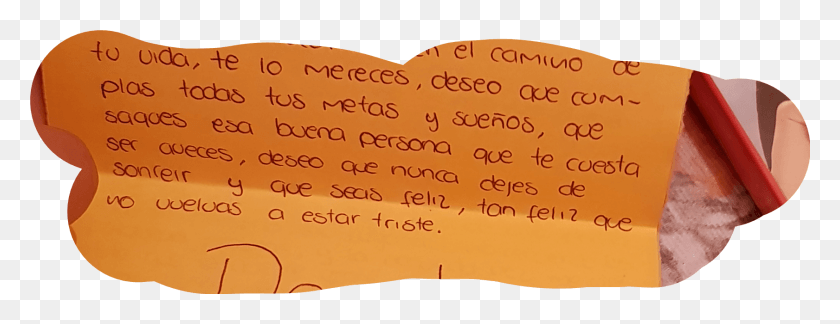 el camino de
tu vida, te lo mereces, deseo que cum-
plas todas tus metas y sueños, que
saques esa buena persona que te cuesta
ser aveces, deseo que nunca dejes de
sonreir y que seas feliz, tan feliz que
no vuelvas a estar triste.